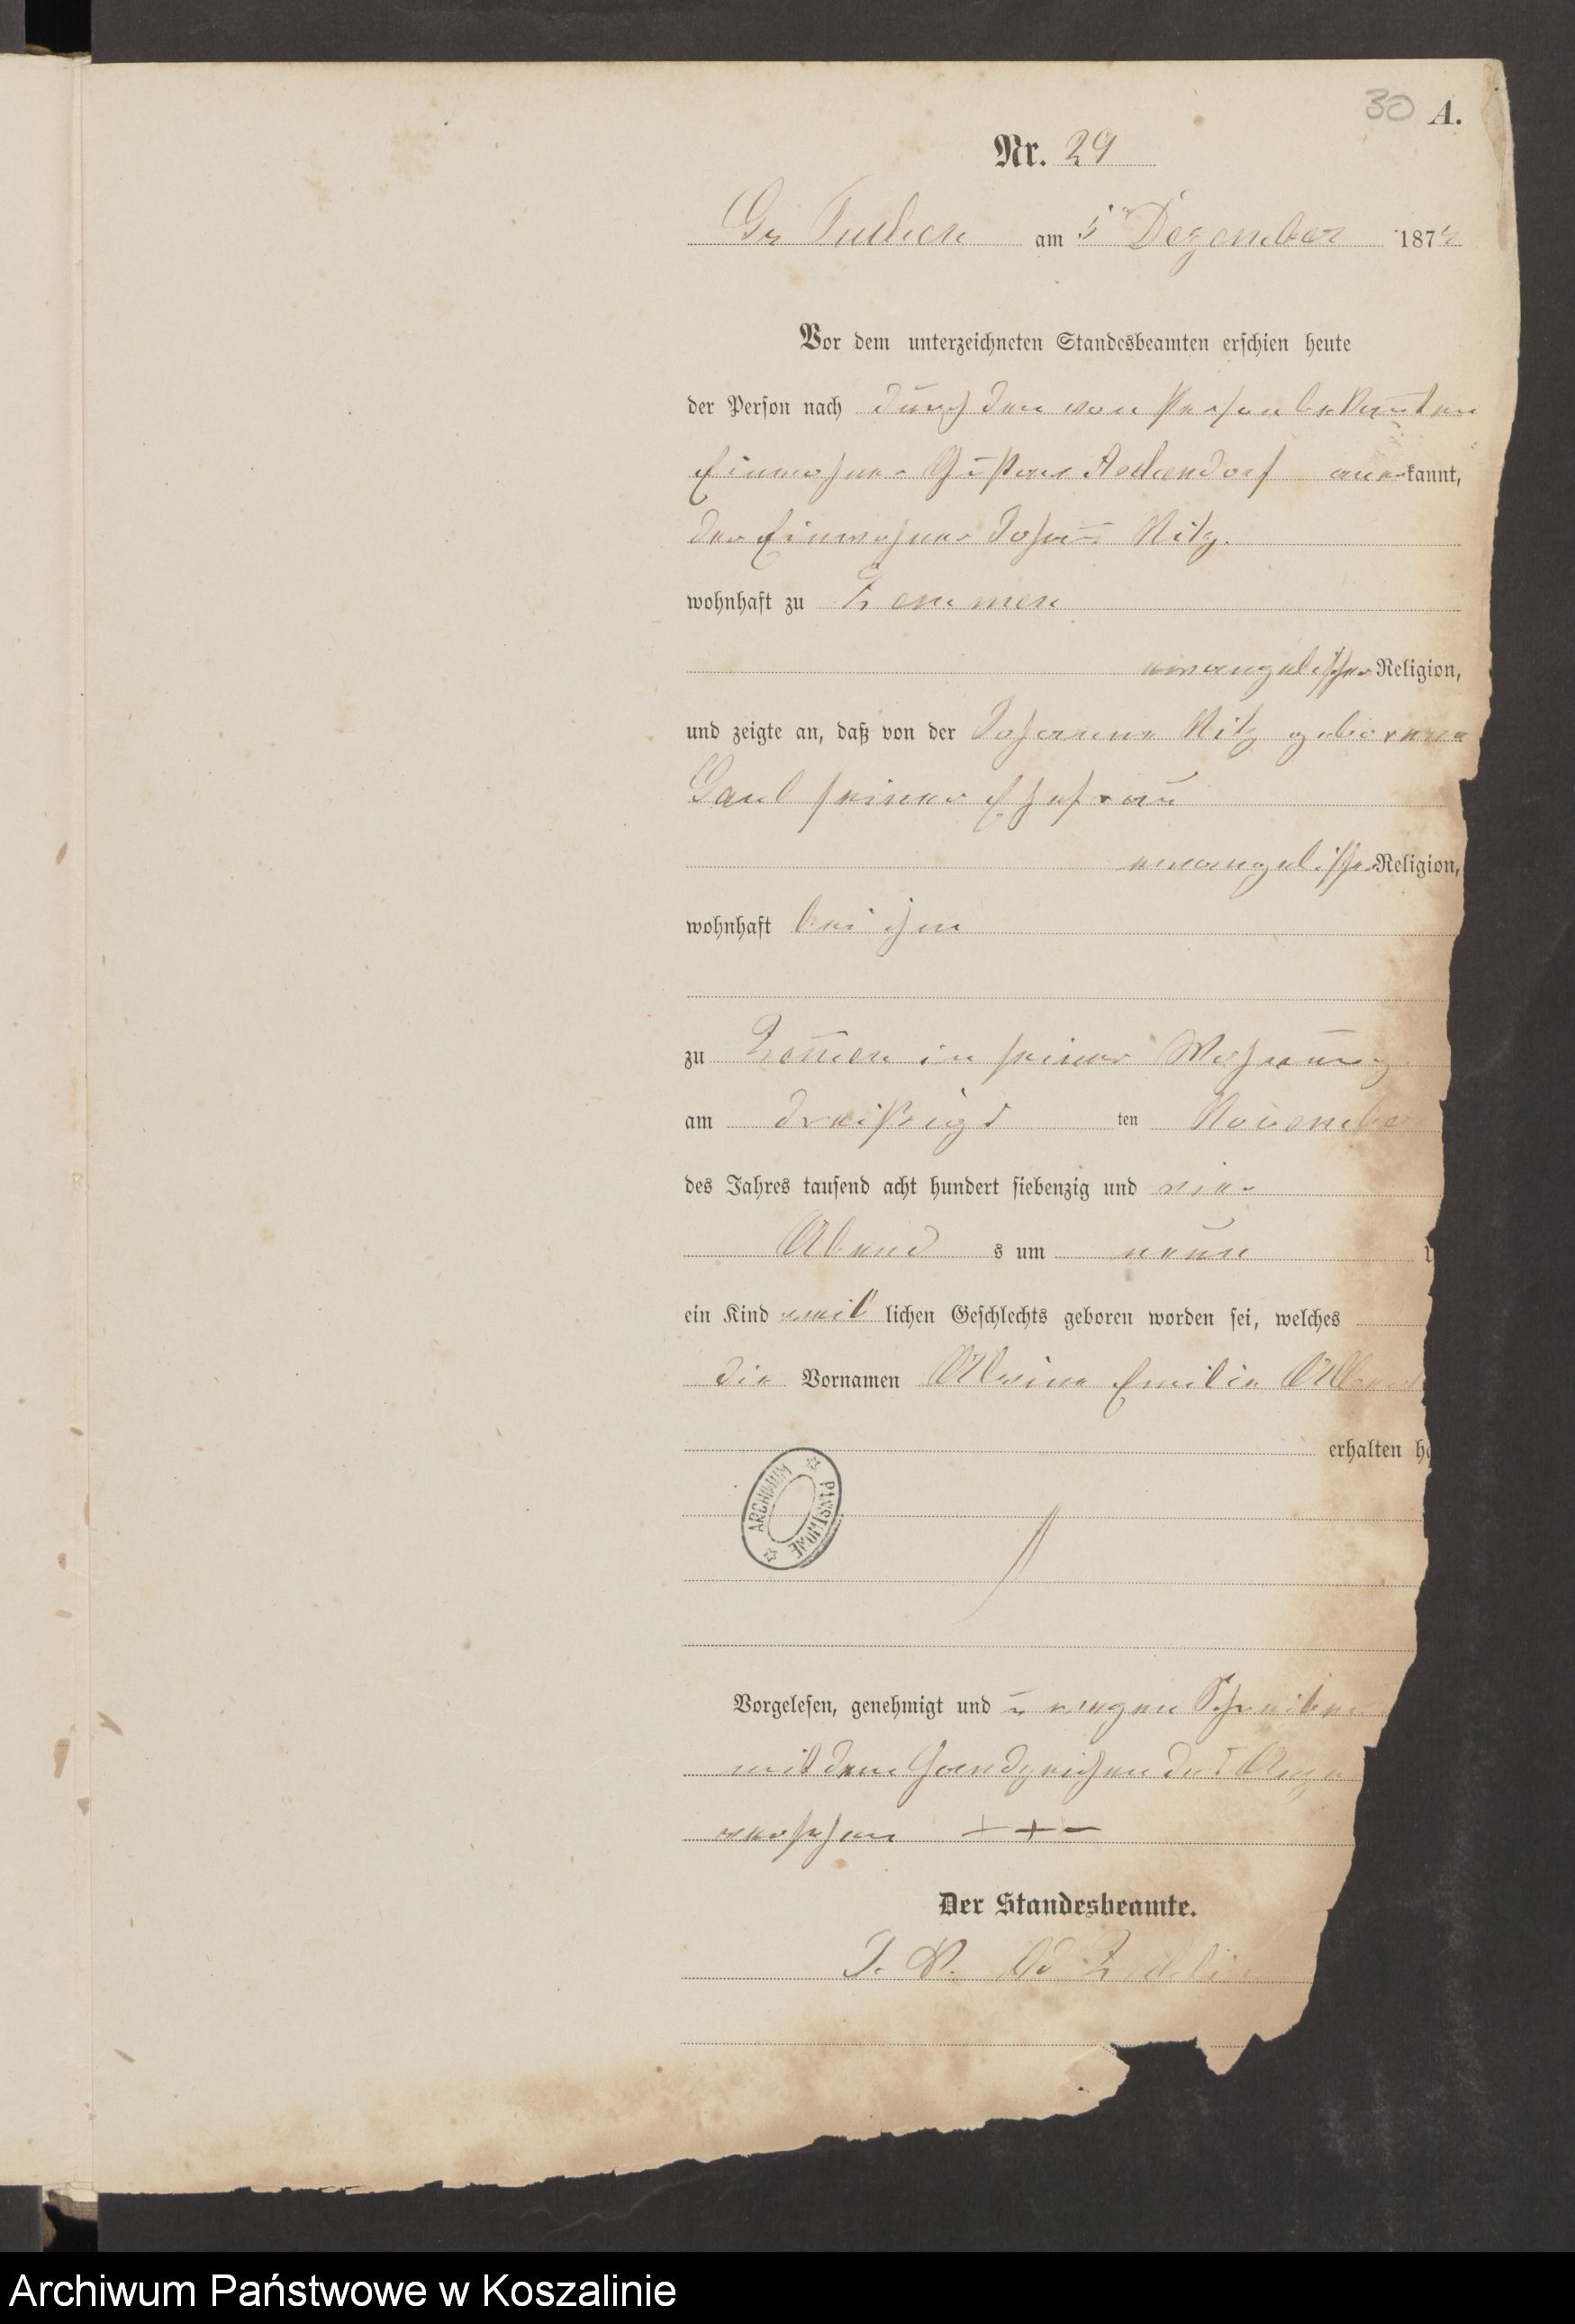 30 A.
Nr. 29
Gr Tuchen am 5 Dezember 1874
Vor dem unterzeichneten Standesbeamten erschien heute
der Person nach durch den von Person bekannten
Einwohner Gustav Aschendorf anerkannt,
der Einwohner Johann Nitz.
wohnhaft zu Zemmen
evangelischer Religion,
und zeigte an, daß von der Johanne Nitz geborenen
Gaul seiner Ehefrau
evangelischer Religion,
wohnhaft bei ihm
zu Zem̄en in seiner Wohnung
am dreißigs ten November
des Jahres tausend acht hundert siebenzig und vier
Abend s um neun
ein Kind weib lichen Geschlechts geboren worden sei, welches
die Vornamen Alwine Emilie
erhalten ha
ARCHIWUM PAŃSTWOWE
Vorgelesen, genehmigt und u wegen Schreiben
mit dem Handzeichen des Anze
versehen + + –
Der Standesbeamte.
J. V.
Archiwum Państwowe w Koszalinie